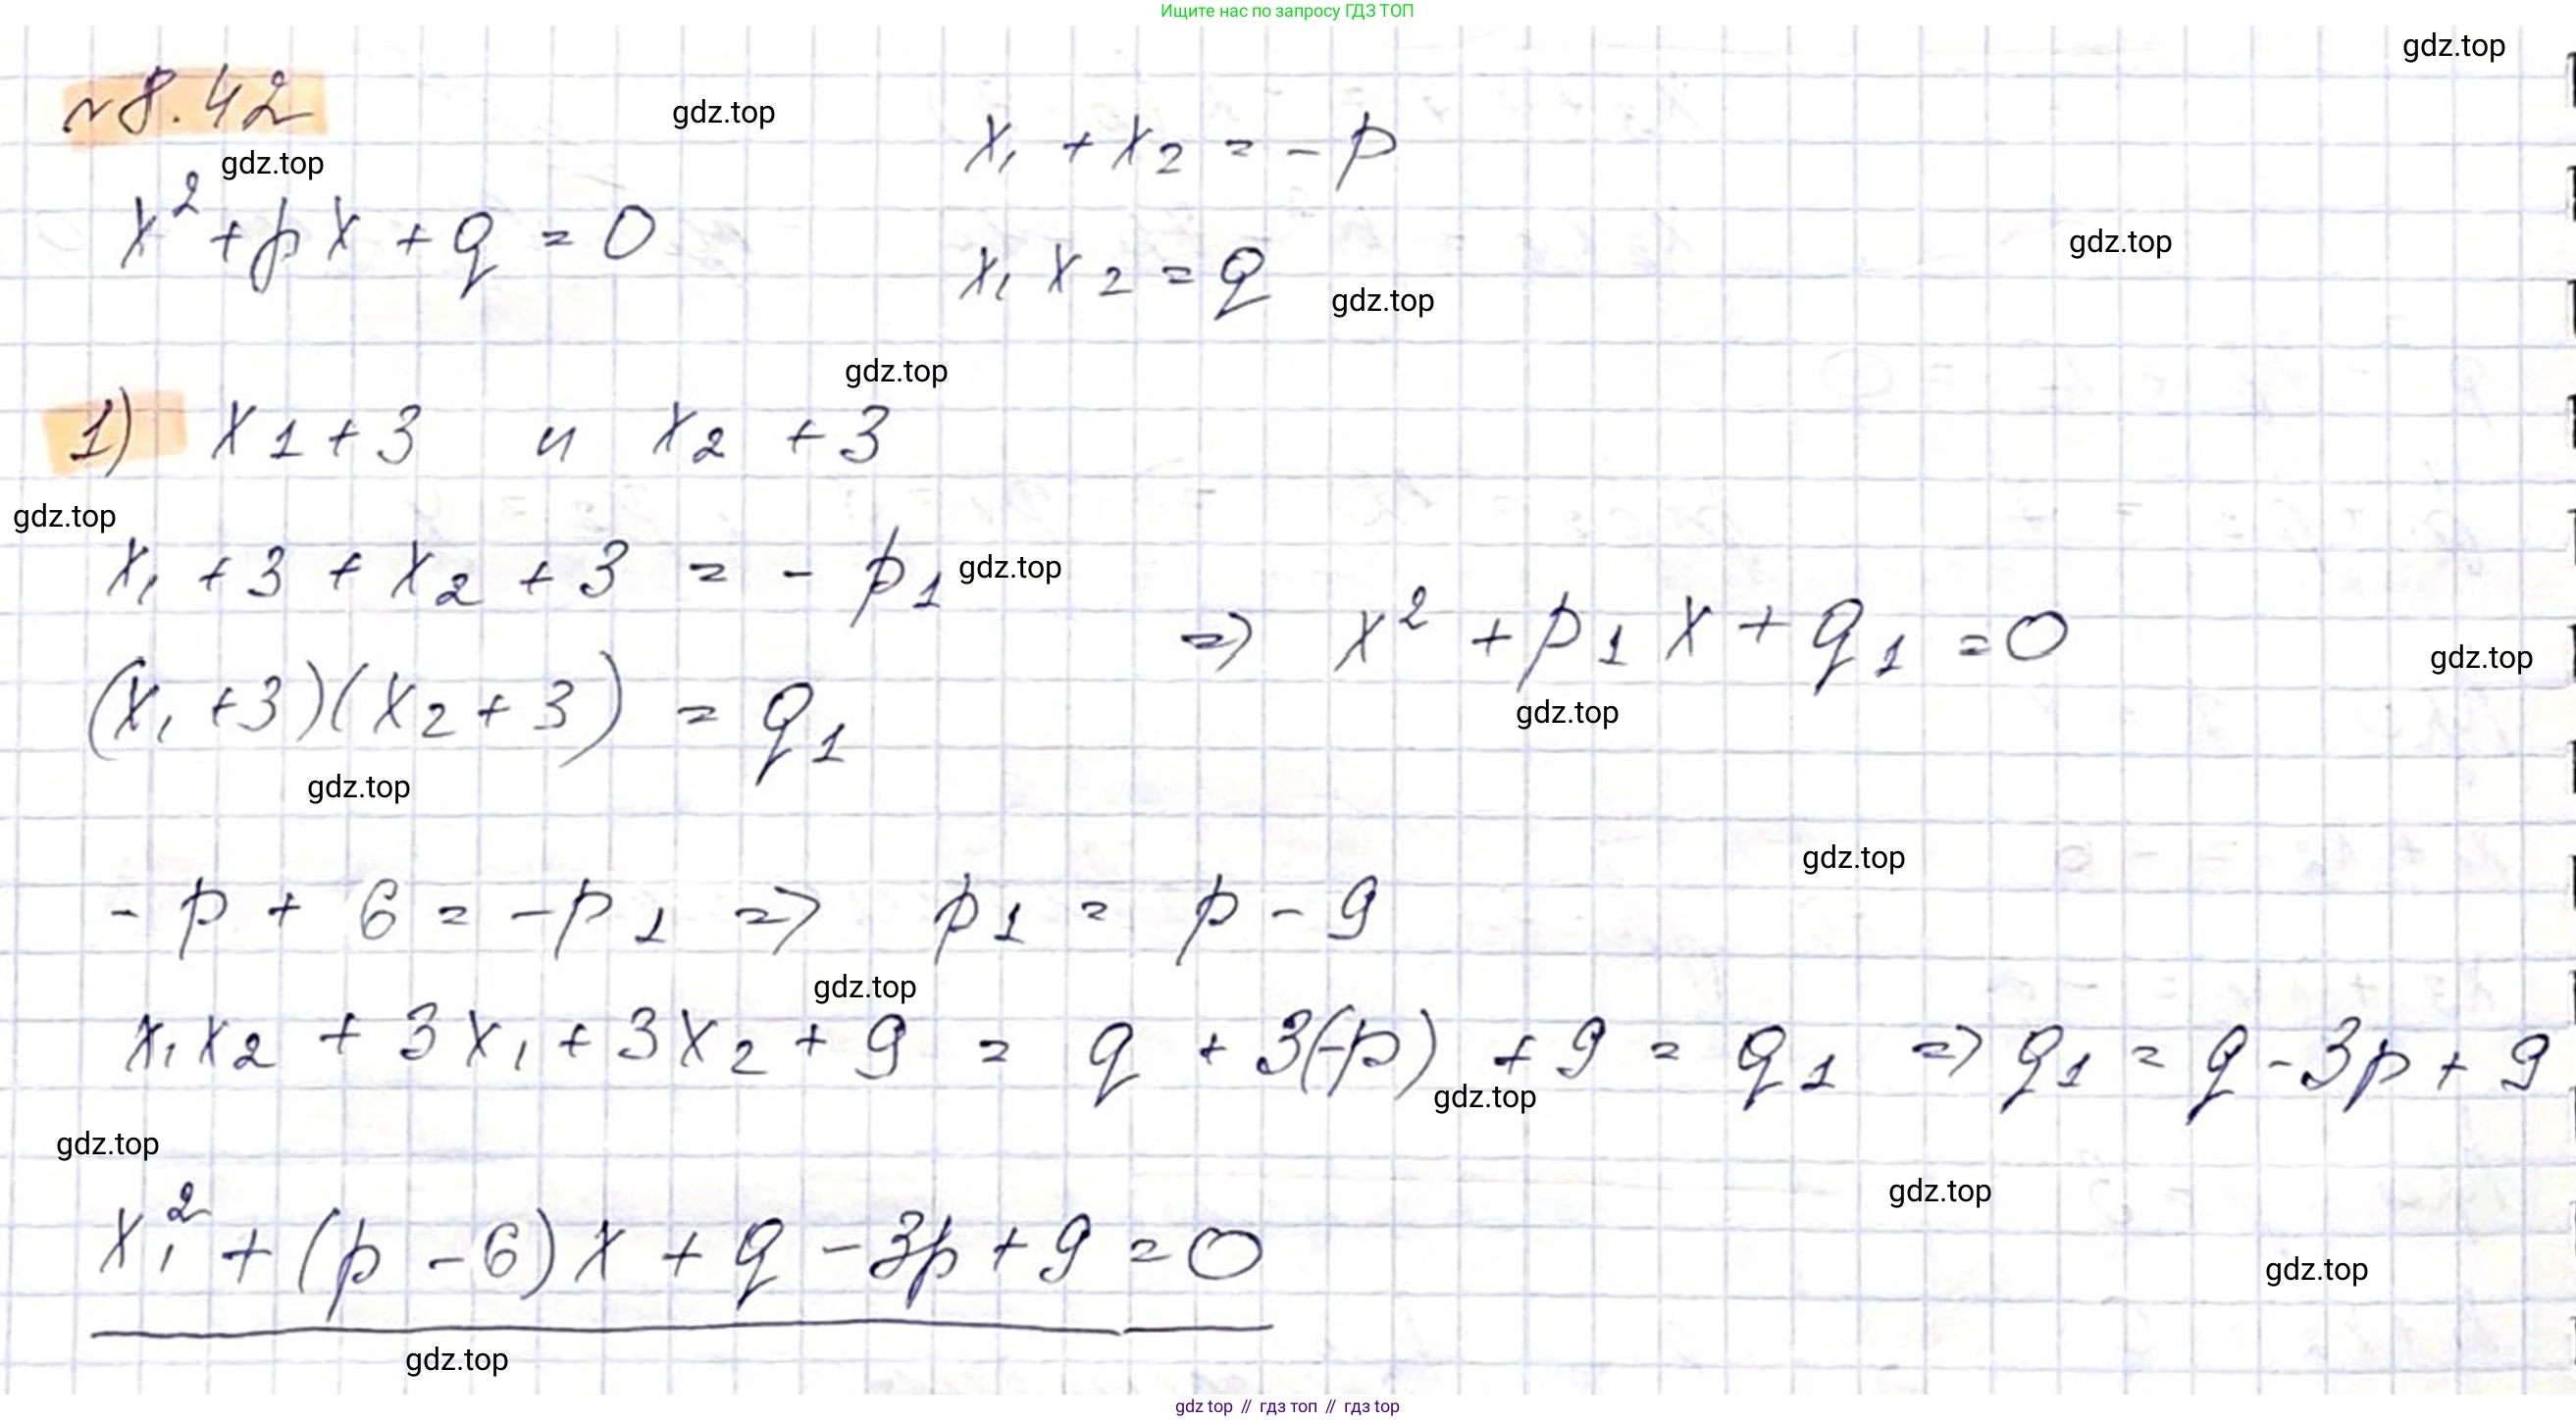 Ищите нас по запросу ГДЗ ТОП
gdz.top
№8.42
gdz.top
x₁ + x₂ = -p
gdz.top
x² + px + q = 0
gdz.top
x₁ x₂ = q
gdz.top
gdz.top
1) x₁ + 3 и x₂ + 3
gdz.top
x₁ + 3 + x₂ + 3 = - p₁
gdz.top
⇒ x² + p₁ x + q₁ = 0
gdz.top
(x₁ + 3)(x₂ + 3) = q₁
gdz.top
gdz.top
gdz.top
- p + 6 = -p₁ ⇒ p₁ = p - 9
gdz.top
x₁x₂ + 3x₁ + 3x₂ + 9 = q + 3(-p) + 9 = q₁ ⇒ q₁ = q - 3p + 9
gdz.top
gdz.top
gdz.top
x₁² + (p - 6)x + q - 3p + 9 = 0
gdz.top
gdz.top
gdz top // гдз топ // гдз top